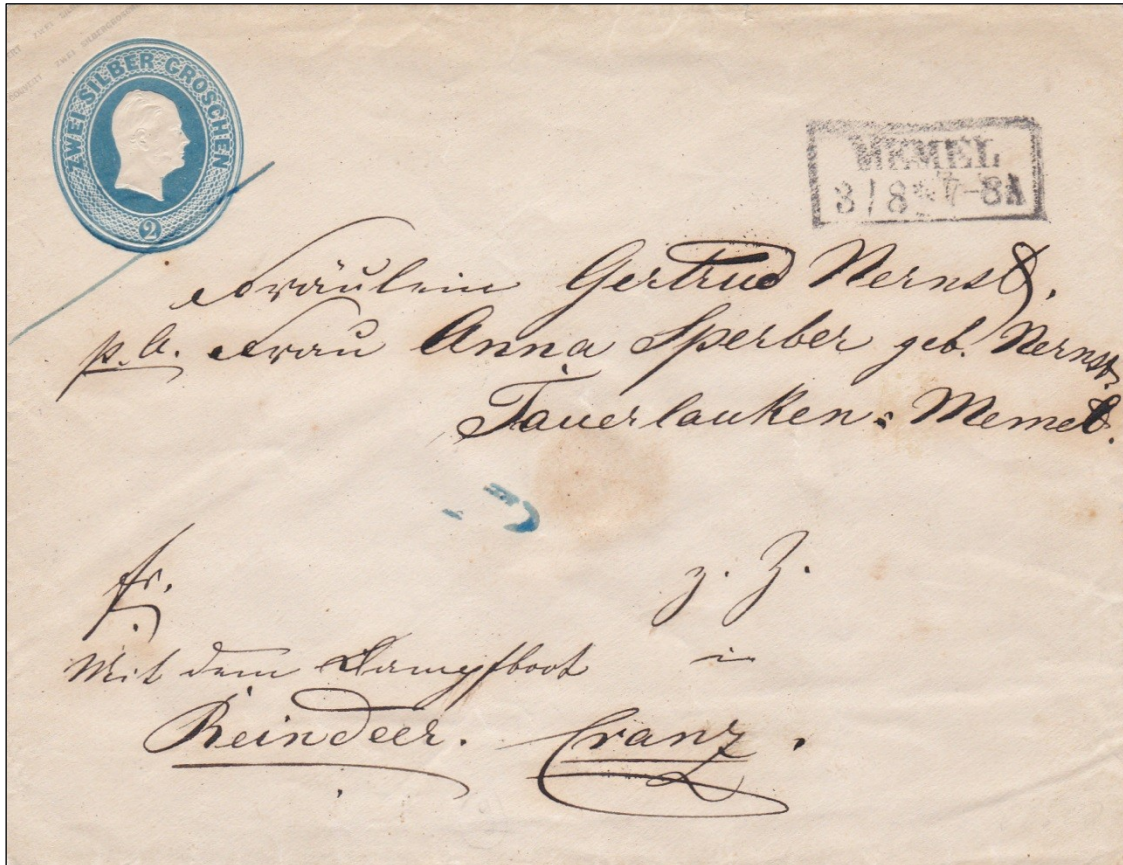 ZWEI SILBER-GROSCHEN
2
MEMEL
3 | 8 * 7-8A
Fräulein Gertrud Nernst,
p. A. Frau Anna Sperber geb. Nernst.
Tauerlauken: Memel.
fr.
z. Z.
Mit dem Dampfboot in
Reindeer. Cranz.